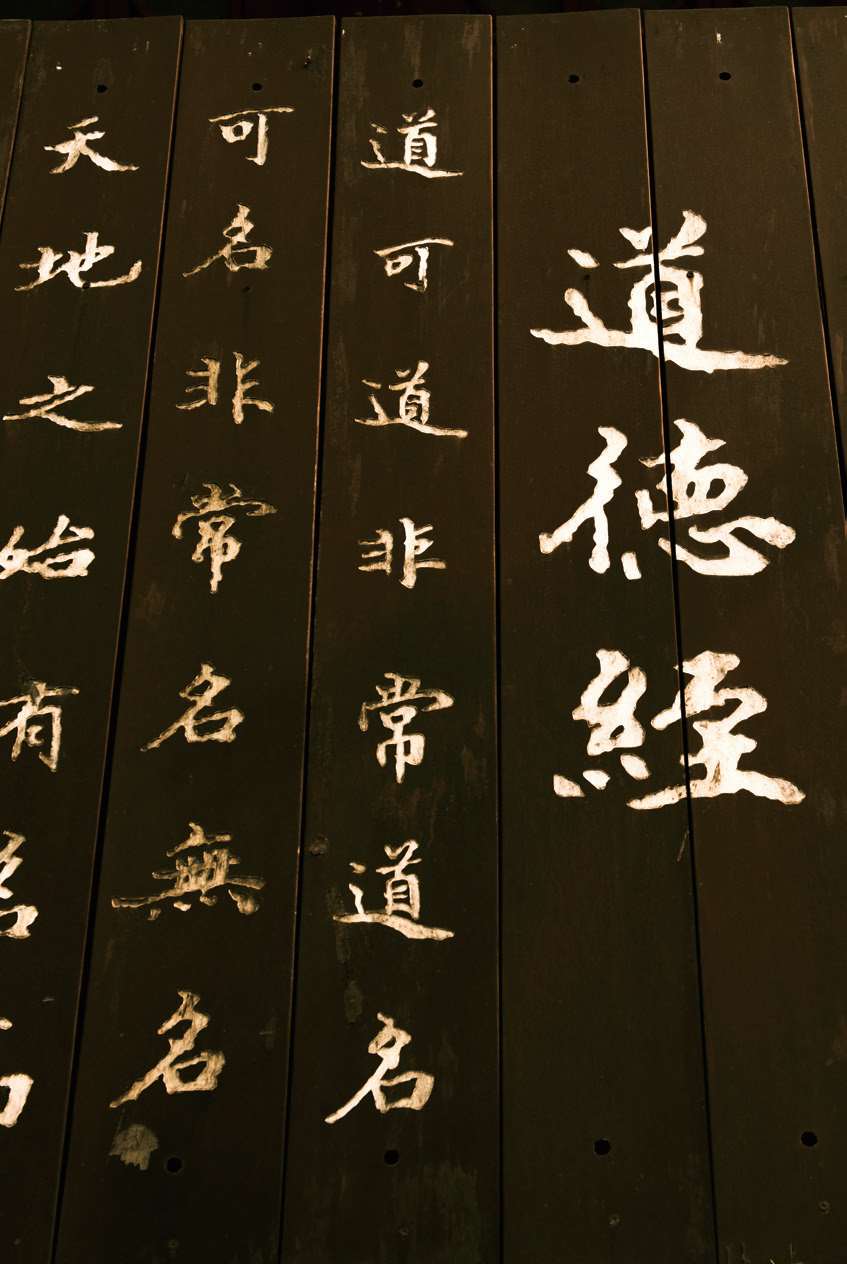 道德經
道可道非常道名
可名非常名無名
天地之始有名